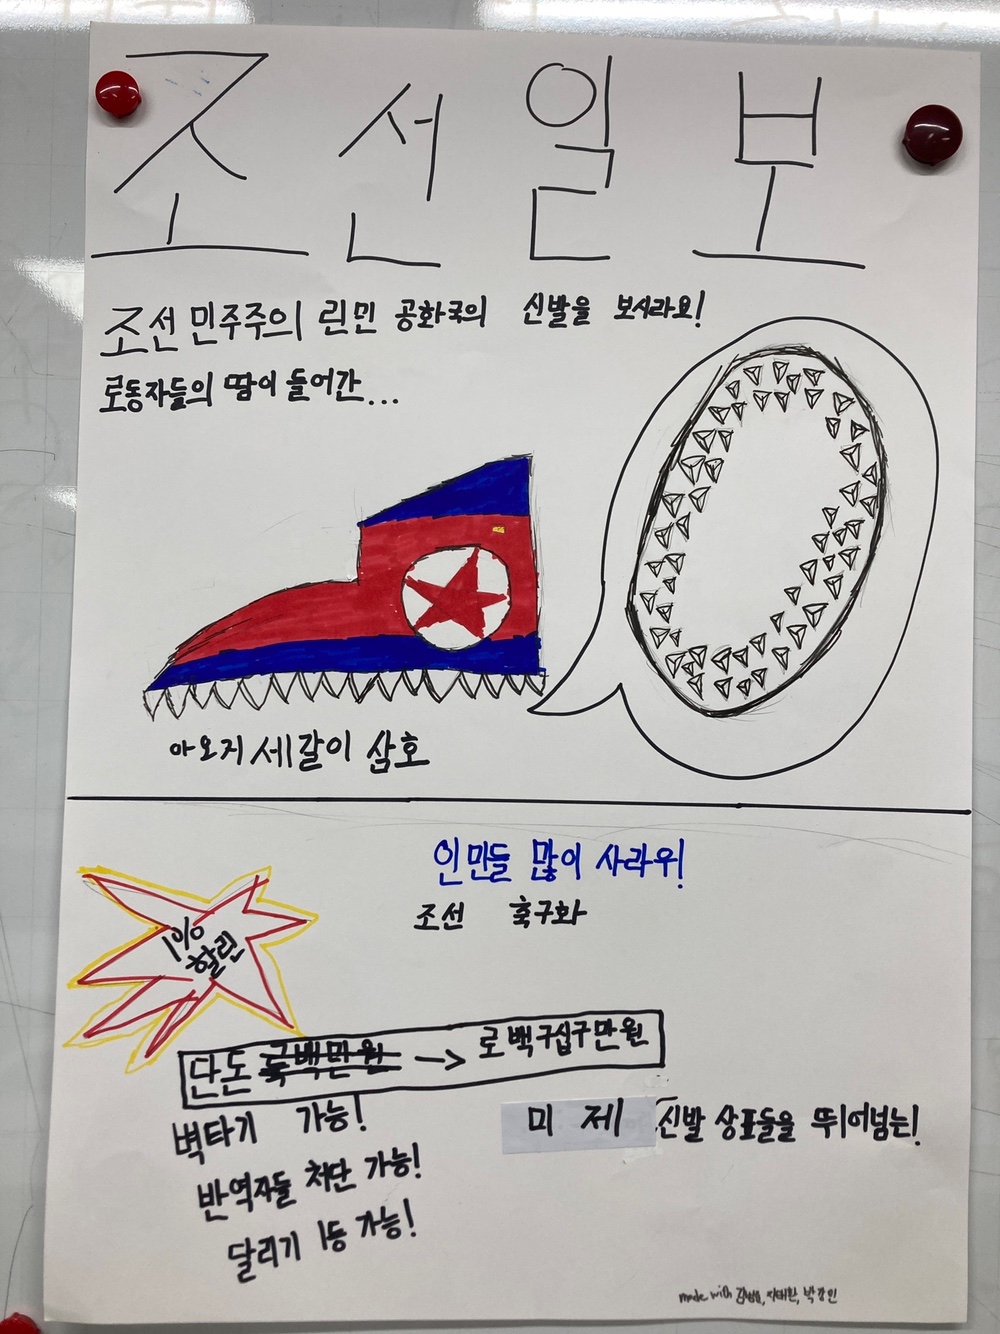 조선일보
조선 민주주의 린민 공화국의 신발을 보시라요!
로동자들의 땀이 들어간...
아오지 세갈이 삼호
인민들 많이 사라우!
조선 축구화
1%
할린
단돈 륙백만원 → 로백구십구만원
벽타기 가능!
미제 신발 상표들을 뛰어넘는!
반역자들 처단 가능!
달리기 1등 가능!
made with 박강민